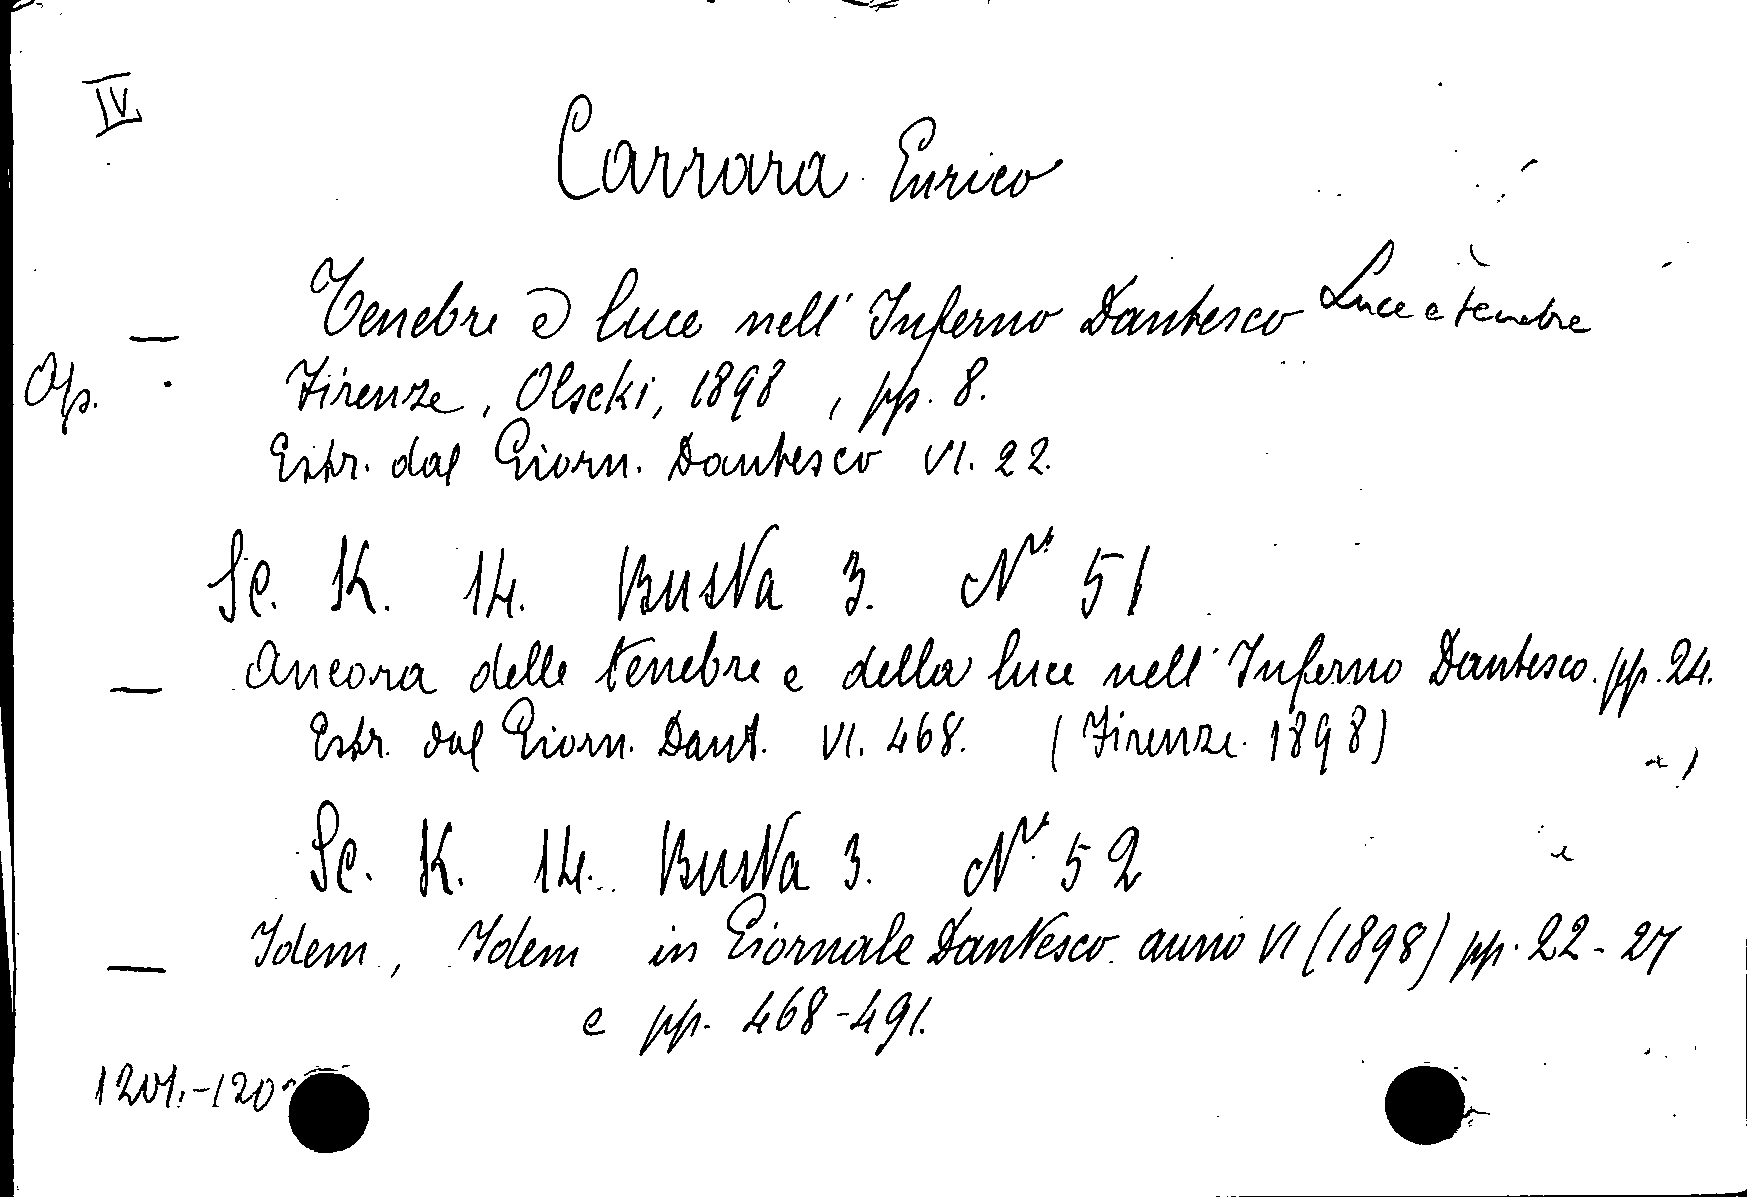 IV
Carrara Enrico
— Tenebre e luce nell' Inferno Dantesco Luce e tenebre
Op. Firenze, Olscki, 1898, pp. 8.
Estr. dal Giorn. Dantesco VI. 22.
Sc. K. 14. Busta 3. N° 51
— Ancora delle tenebre e della luce nell' Inferno Dantesco. pp. 24.
Estr. dal Giorn. Dant. VI. 468. (Firenze. 1898)
Sc. K. 14. Busta 3. N° 52
— Idem, Idem in Giornale Dantesco. anno VI (1898) pp. 22-27
e pp. 468-491.